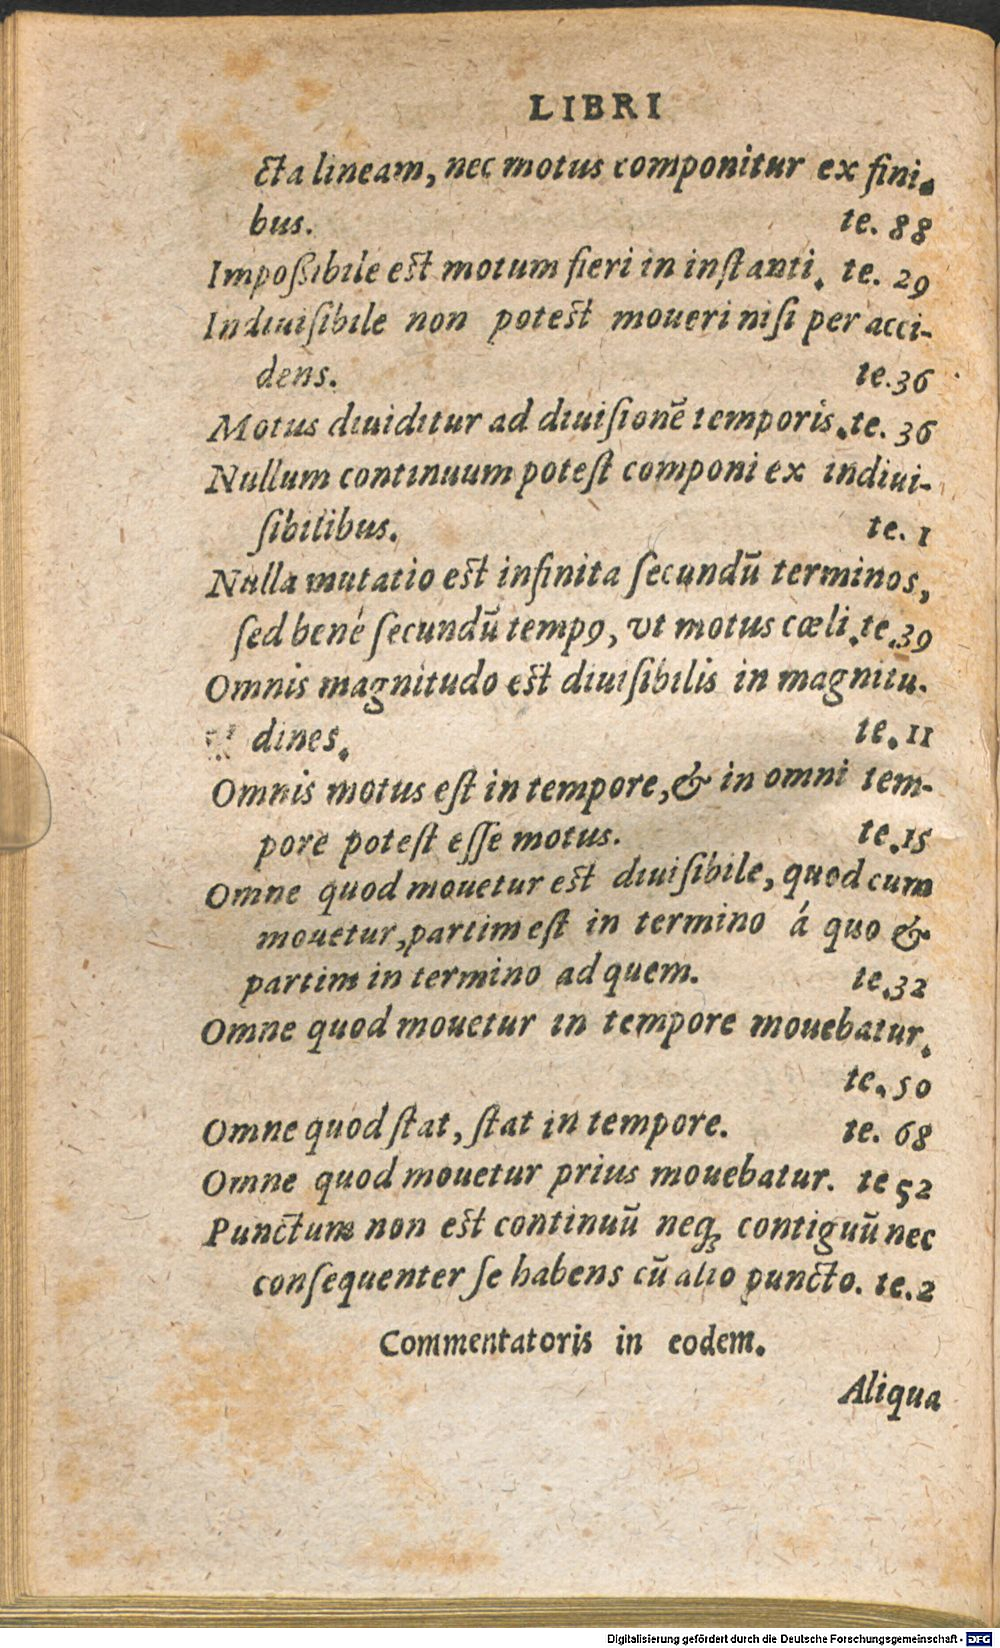 LIBRI
cta lineam, nec motus componitur ex fini.
bus. te. 88
Impoßibile est motum fieri in instanti. te. 29
Indiuisibile non potest moueri nisi per acci-
dens. te.36
Motus diuiditur ad diuisionē temporis.te. 36
Nullum continuum potest componi ex indiui-
sibilibus. te. 1
Nulla mutatio est infinita secundū terminos,
sed bené secundū tempꝰ, vt motus cœli.te.39
Omnis magnitudo est diuisibilis in magnitu-
dines. te. 11
Omnis motus est in tempore, & in omni tem-
pore potest esse motus. te.15
Omne quod mouetur est diuisibile, quod cum
mouetur, partim est in termino á quo &
partim in termino ad quem. te.32
Omne quod mouetur in tempore mouebatur.
te. 50
Omne quod stat, stat in tempore. te. 68
Omne quod mouetur prius mouebatur. te 52
Punctum non est continuū neqꝫ contiguū nec
consequenter se habens cū alio puncto. te.2
Commentatoris in eodem.
Aliqua
Digitalisierung gefördert durch die Deutsche Forschungsgemeinschaft - DFG